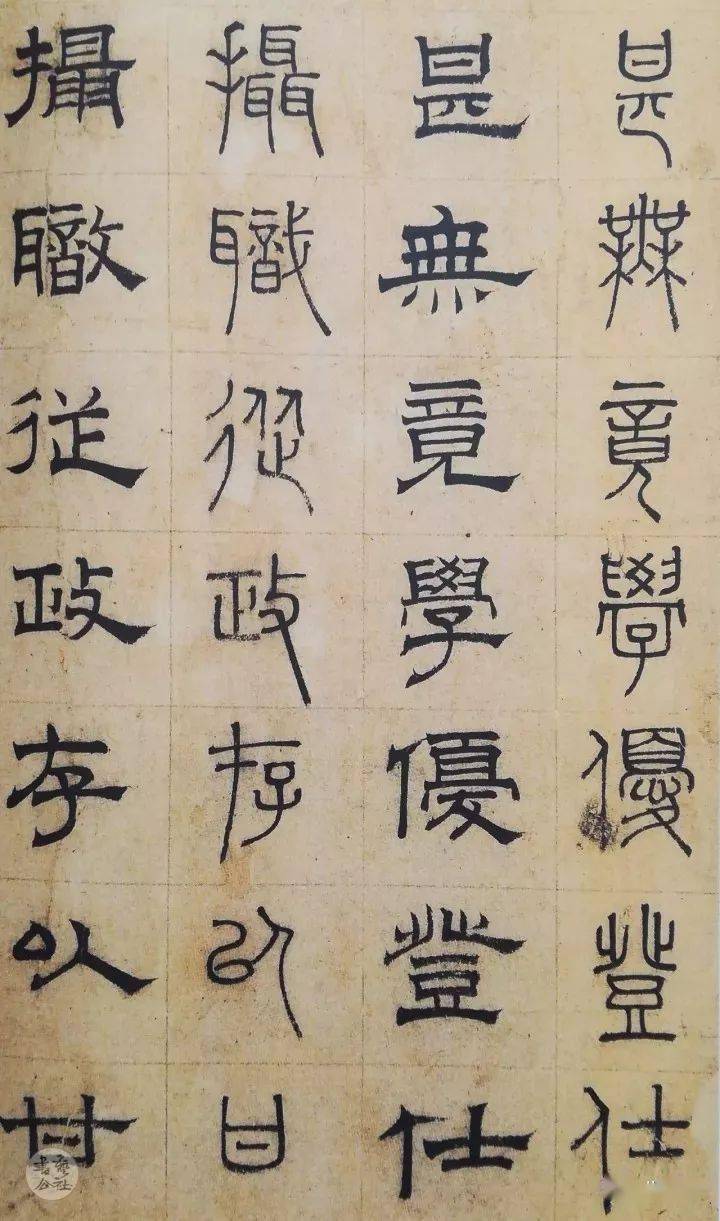 甚無竟學優登仕
甚無竟學優登仕
攝職從政存以甘
攝職從政存以甘